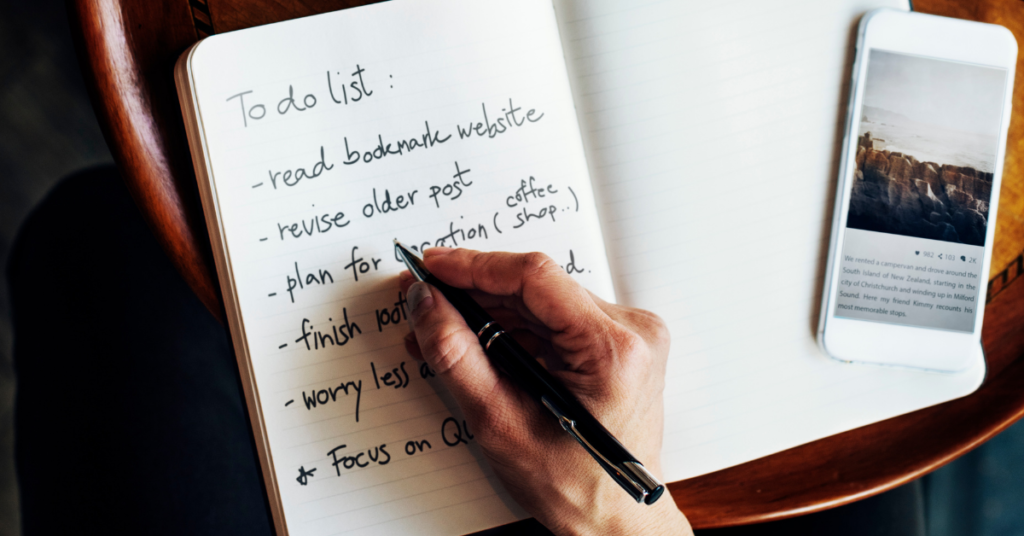 To do list :
- read bookmark website
- revise older post
- plan for (coffee
shop..)
- finish
- worry less
* Focus on
982 103 2K
We rented a campervan and drove around the
South Island of New Zealand, starting in the
city of Christchurch and winding up in Milford
Sound. Here my friend Kimmy recounts his
most memorable stops.